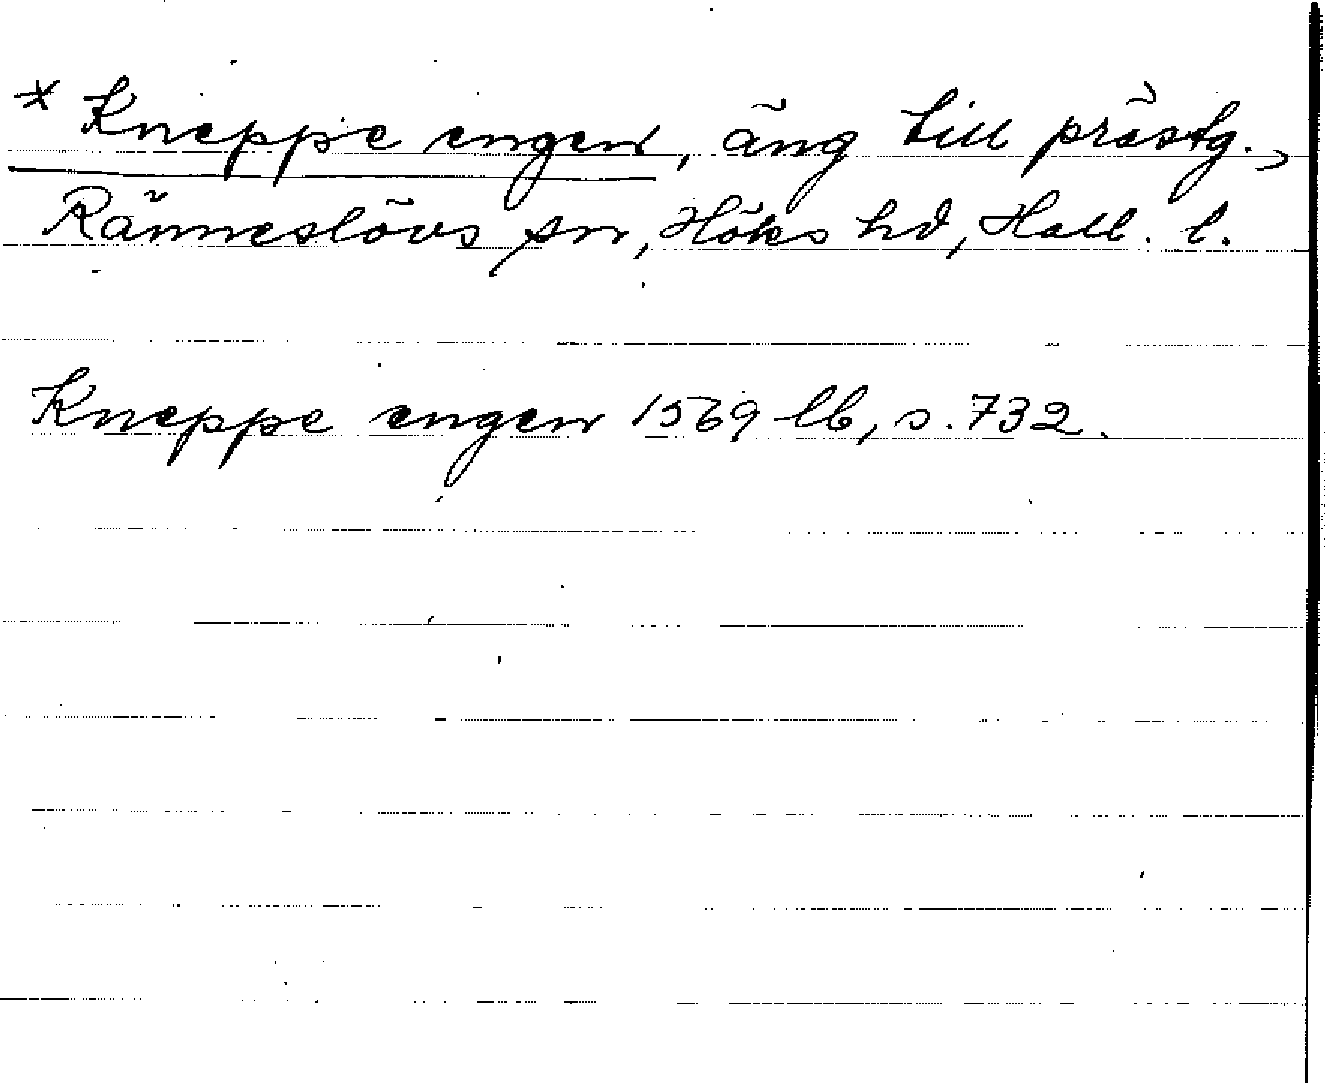 * Kneppe engen, äng till prästg.,
Ränneslövs sn, Höks hd, Hall. l.
Kneppe engen 1569 lb, s. 732.